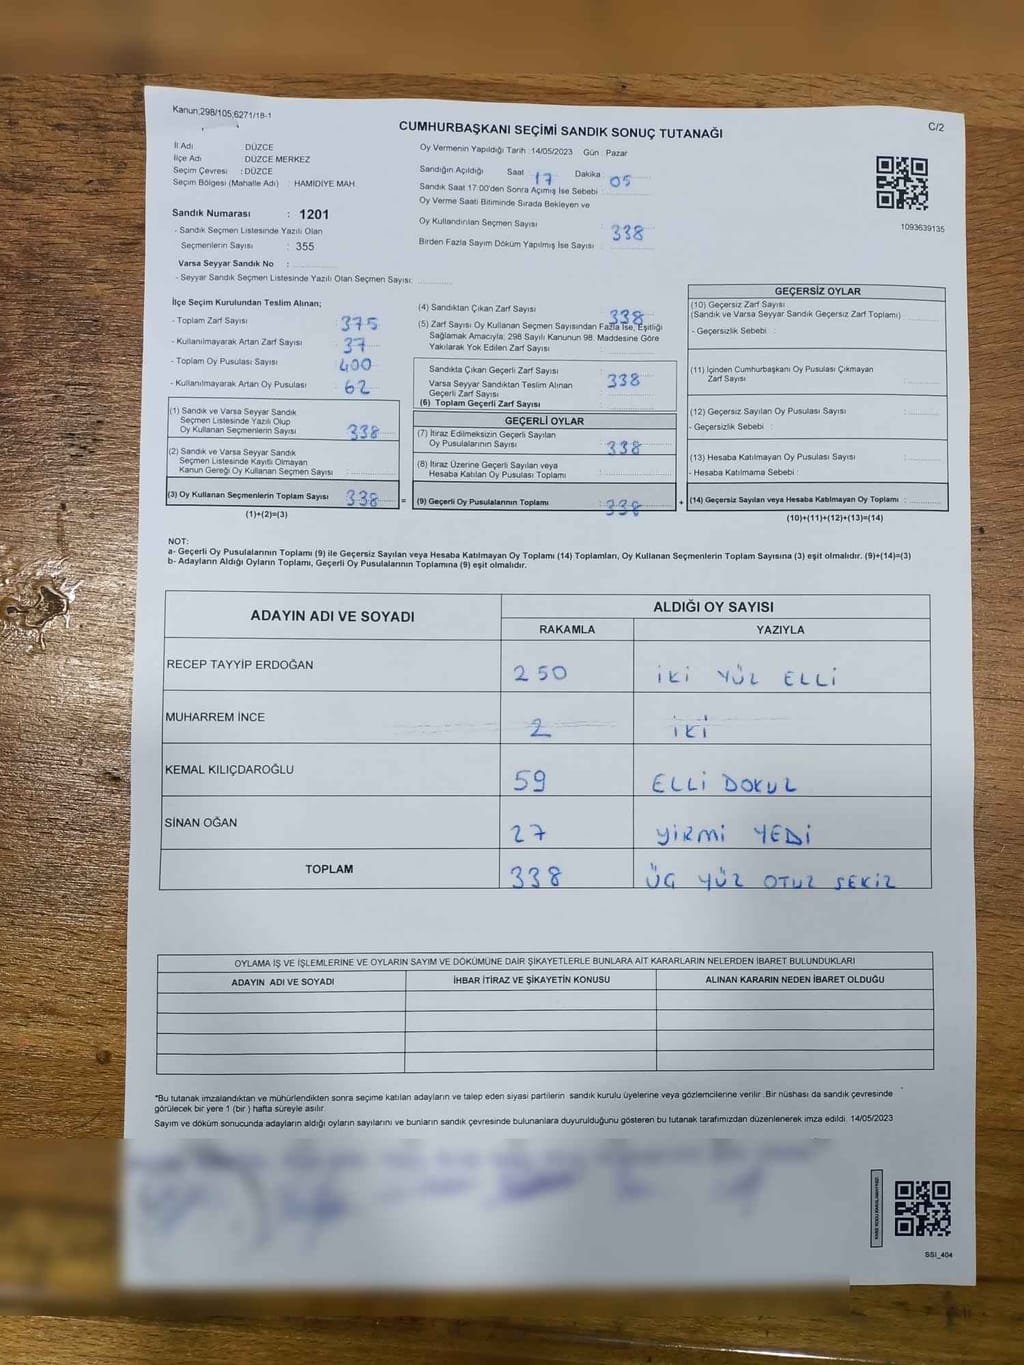 Kanun;298/105;6271/18-1
C/2
CUMHURBAŞKANI SEÇİMİ SANDIK SONUÇ TUTANAĞI
İl Adı DÜZCE
İlçe Adı DÜZCE MERKEZ
Seçim Çevresi : DÜZCE
Seçim Bölgesi (Mahalle Adı) : HAMIDIYE MAH.
Sandık Numarası : 1201
- Sandık Seçmen Listesinde Yazılı Olan
Seçmenlerin Sayısı : 355
Varsa Seyyar Sandık No :
- Seyyar Sandık Seçmen Listesinde Yazılı Olan Seçmen Sayısı:
Oy Vermenin Yapıldığı Tarih : 14/05/2023 Gün : Pazar
Sandığın Açıldığı Saat 17 Dakika 05
Sandık Saat 17:00'den Sonra Açımış İse Sebebi :
Oy Verme Saati Bitiminde Sırada Bekleyen ve
Oy Kullandırılan Seçmen Sayısı : 338
Birden Fazla Sayım Döküm Yapılmış İse Sayısı :
1093639135
İlçe Seçim Kurulundan Teslim Alınan;
- Toplam Zarf Sayısı : 375
- Kullanılmayarak Artan Zarf Sayısı : 37
- Toplam Oy Pusulası Sayısı : 400
- Kullanılmayarak Artan Oy Pusulası : 62
(1) Sandık ve Varsa Seyyar Sandık
Seçmen Listesinde Yazılı Olup
Oy Kullanan Seçmenlerin Sayısı : 338
(2) Sandık ve Varsa Seyyar Sandık
Seçmen Listesinde Kayıtlı Olmayan
Kanun Gereği Oy Kullanan Seçmen Sayısı :
(3) Oy Kullanan Seçmenlerin Toplam Sayısı : 338 =
(1)+(2)=(3)
(4) Sandıktan Çıkan Zarf Sayısı : 338
(5) Zarf Sayısı Oy Kullanan Seçmen Sayısından Fazla İse, Eşitliği
Sağlamak Amacıyla; 298 Sayılı Kanunun 98. Maddesine Göre
Yakılarak Yok Edilen Zarf Sayısı :
Sandıkta Çıkan Geçerli Zarf Sayısı : 338
Varsa Seyyar Sandıktan Teslim Alınan
Geçerli Zarf Sayısı :
(6) Toplam Geçerli Zarf Sayısı :
GEÇERLİ OYLAR
(7) İtiraz Edilmeksizin Geçerli Sayılan
Oy Pusulalarının Sayısı : 338
(8) İtiraz Üzerine Geçerli Sayılan veya
Hesaba Katılan Oy Pusulası Toplamı :
(9) Geçerli Oy Pusulalarının Toplamı : 338 +
GEÇERSİZ OYLAR
(10) Geçersiz Zarf Sayısı
(Sandık ve Varsa Seyyar Sandık Geçersiz Zarf Toplamı)
- Geçersizlik Sebebi :
(11) İçinden Cumhurbaşkanı Oy Pusulası Çıkmayan
Zarf Sayısı :
(12) Geçersiz Sayılan Oy Pusulası Sayısı :
- Geçersizlik Sebebi :
(13) Hesaba Katılmayan Oy Pusulası Sayısı :
- Hesaba Katılmama Sebebi :
(14) Geçersiz Sayılan veya Hesaba Katılmayan Oy Toplamı :
(10)+(11)+(12)+(13)=(14)
NOT:
a- Geçerli Oy Pusulalarının Toplamı (9) ile Geçersiz Sayılan veya Hesaba Katılmayan Oy Toplamı (14) Toplamları, Oy Kullanan Seçmenlerin Toplam Sayısına (3) eşit olmalıdır. (9)+(14)=(3)
b- Adayların Aldığı Oyların Toplamı, Geçerli Oy Pusulalarının Toplamına (9) eşit olmalıdır.
ADAYIN ADI VE SOYADI
ALDIĞI OY SAYISI
RAKAMLA YAZIYLA
RECEP TAYYİP ERDOĞAN 250 İKİ YÜZ ELLİ
MUHARREM İNCE 2 İKİ
KEMAL KILIÇDAROĞLU 59 ELLİ DOKUZ
SİNAN OĞAN 27 YİRMİ YEDİ
TOPLAM 338 ÜÇ YÜZ OTUZ SEKİZ
OYLAMA İŞ VE İŞLEMLERİNE VE OYLARIN SAYIM VE DÖKÜMÜNE DAİR ŞİKAYETLERLE BUNLARA AİT KARARLARIN NELERDEN İBARET BULUNDUKLARI
ADAYIN ADI VE SOYADI İHBAR İTİRAZ VE ŞİKAYETİN KONUSU ALINAN KARARIN NEDEN İBARET OLDUĞU
*Bu tutanak imzalandıktan ve mühürlendikten sonra seçime katılan adayların ve talep eden siyasi partilerin sandık kurulu üyelerine veya gözlemcilerine verilir .Bir nüshası da sandık çevresinde
görülecek bir yere 1 (bir ) hafta süreyle asılır.
Sayım ve döküm sonucunda adayların aldığı oyların sayılarını ve bunların sandık çevresinde bulunanlara duyurulduğunu gösteren bu tutanak tarafımızdan düzenlenerek imza edildi. 14/05/2023
SSI_404